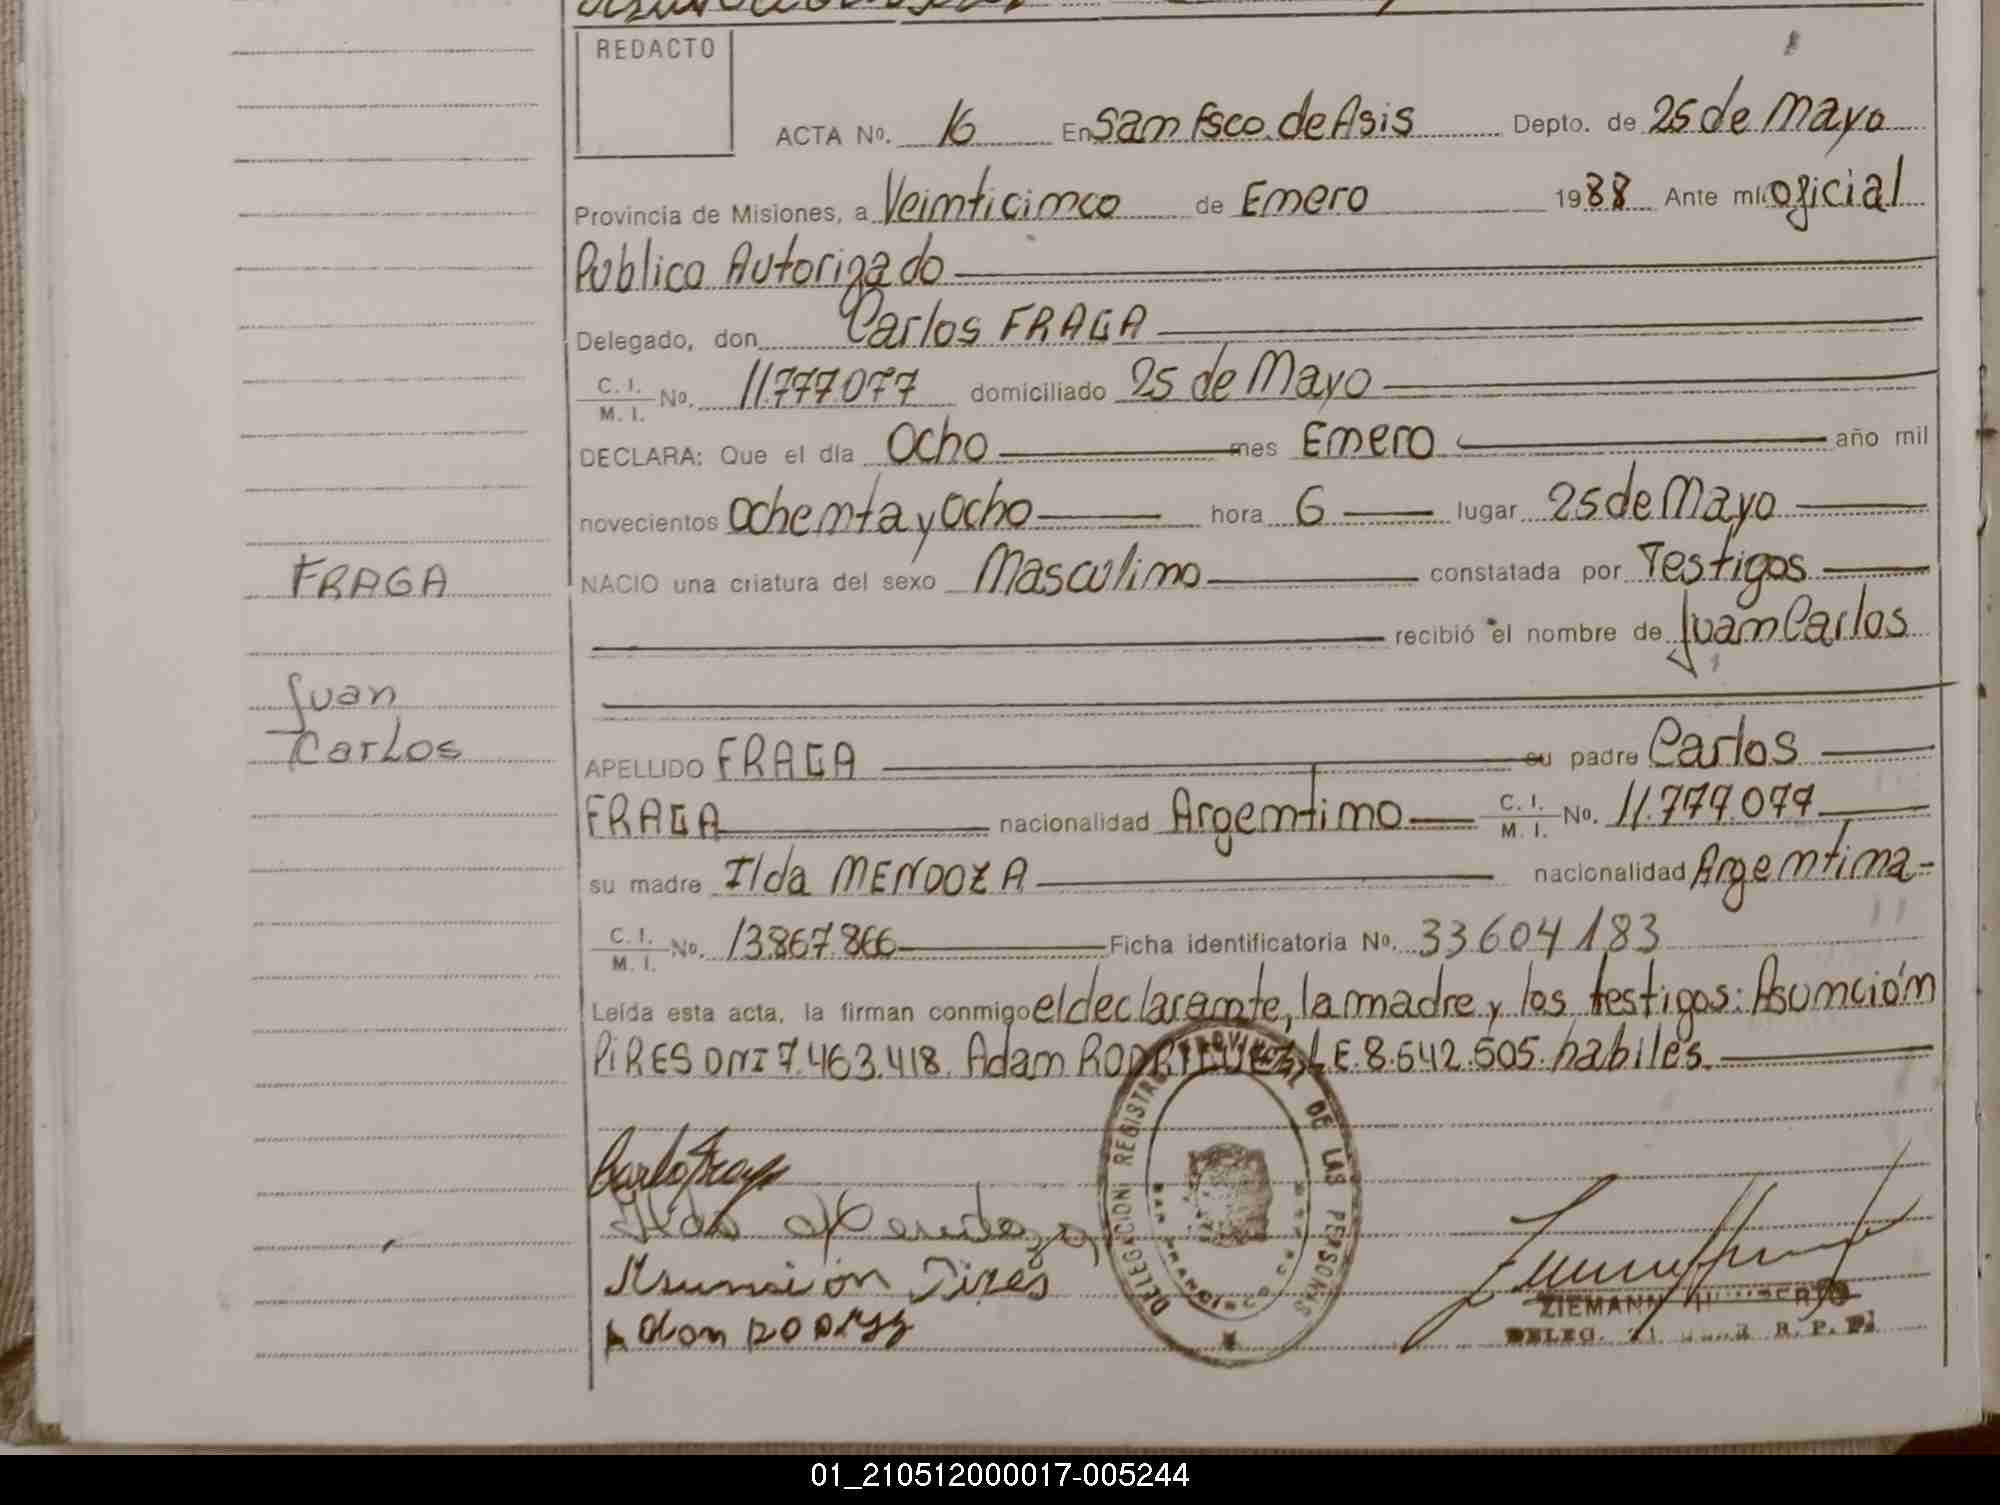 REDACTO
ACTA No. 16 En San Fsco. de Asis Depto. de 25 de Mayo
Provincia de Misiones, a Veinticinco de Enero 1988 Ante mí: oficial
Publico Autorizado
Delegado, don Carlos FRAGA
C. I. / M. I. No. 11.777.077 domiciliado 25 de Mayo
DECLARA: Que el día Ocho mes Enero año mil
novecientos Ochenta y Ocho hora 6 lugar 25 de Mayo
FRAGA
NACIO una criatura del sexo Masculino constatada por Testigos
recibió el nombre de Juan Carlos
Juan
Carlos
APELLIDO FRAGA su padre Carlos
FRAGA nacionalidad Argentino C. I. / M. I. No. 11.777.077
su madre Ilda MENDOZA nacionalidad Argentina
C. I. / M. I. No. 13.867.866 Ficha identificatoria No. 33604183
Leída esta acta, la firman conmigo el declarante, la madre y los testigos: Asunción
PIRES DNI 7.463.418. Adam RODRIGUEZ, L.E. 8.542.505. habiles.
DELEGACION REGISTRO PROVINCIAL DE LAS PERSONAS
SAN FRANCISCO
Carlos Fraga
Ilda Mendoza
Asunsión Pires
ZIEMANN
DELEG. R. P. P.
01_210512000017-005244